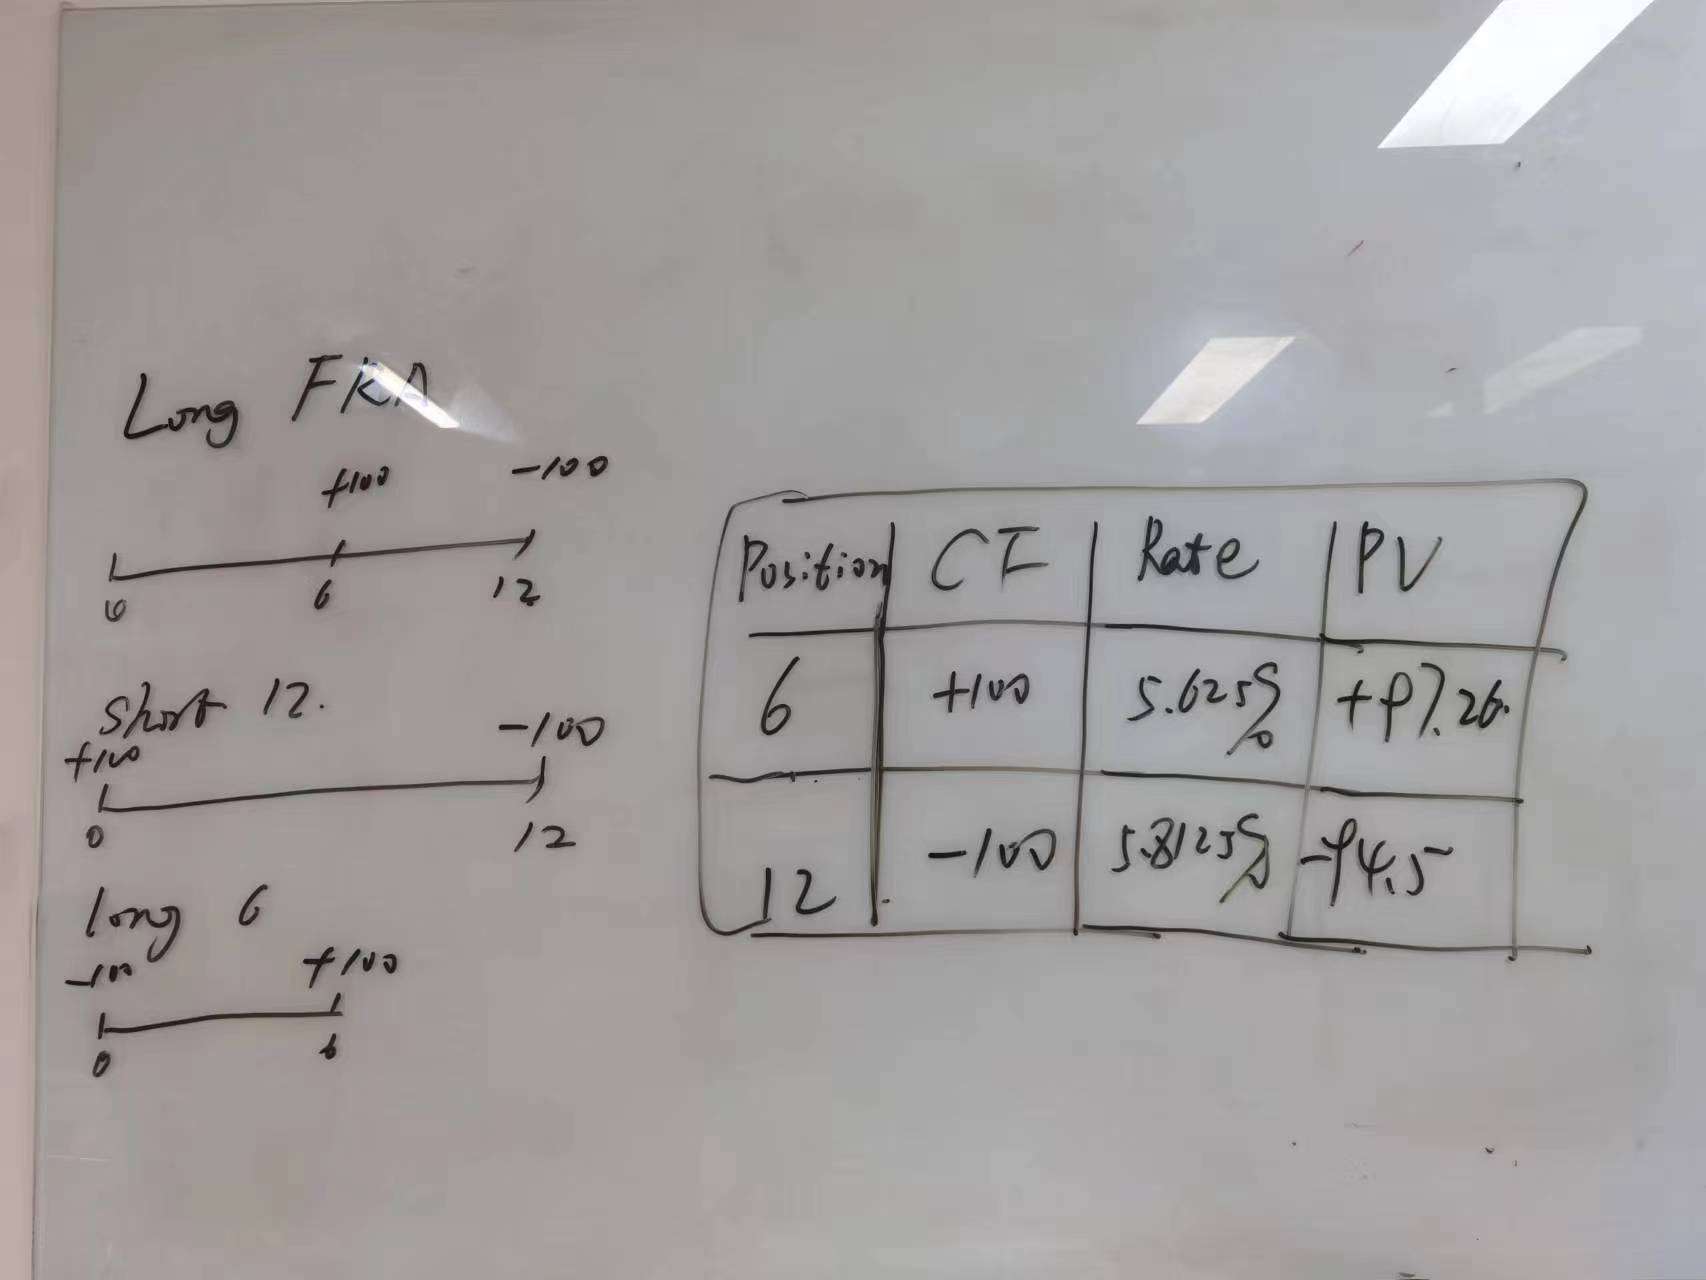 Long FRA
+100 -100
0 6 12
Short 12.
+100 -100
0 12
long 6
-100 +100
0 6
Position CF Rate PV
6 +100 5.625% +97.26.
12 -100 5.8125% -94.5